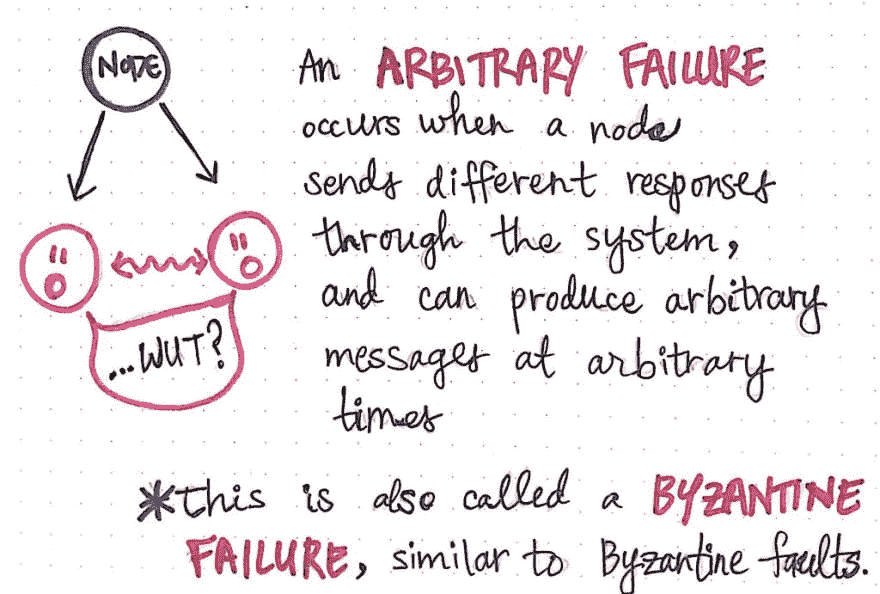 NODE
An ARBITRARY FAILURE
occurs when a node
sends different responses
through the system,
and can produce arbitrary
messages at arbitrary
times
...WUT?
*this is also called a BYZANTINE
FAILURE, similar to Byzantine faults.